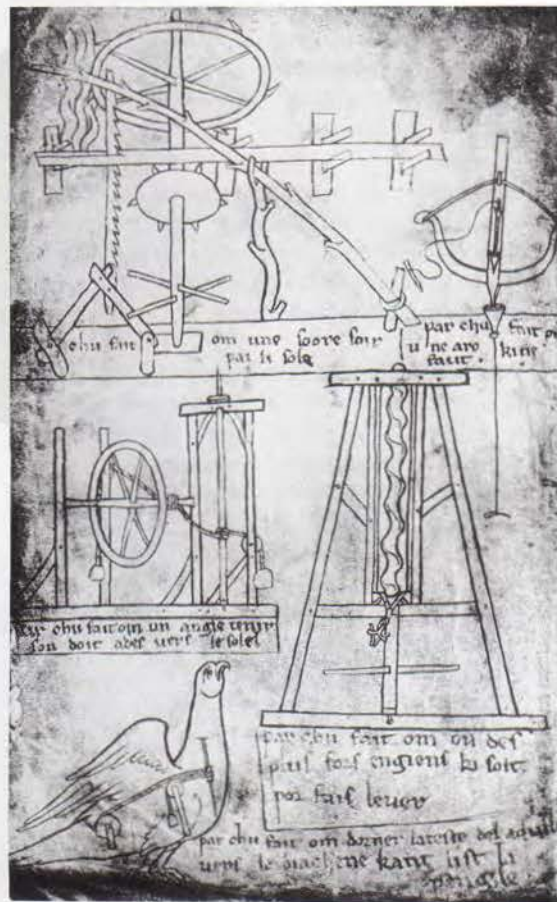 chu fait om une soore soir
par li sole
par chu fait
u ne arc kine
faut .
par chu fait om un angle tenir
son doit ades vers le solel
par chu fait om on des
plus fors engiens ki soit
por fais lever
par chu fait om dorner lateste del aquile
vers le diachene kant list la
vangile